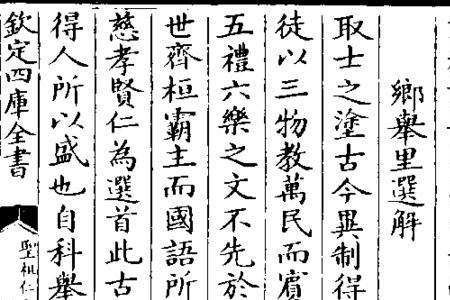 鄉舉里選解
取士之塗古今異制得
徒以三物教萬民而賔
五禮六樂之文不先於
世齊桓霸主而國語所
慈孝賢仁為選首此古
得人所以盛也自科舉
欽定四庫全書
聖祖仁